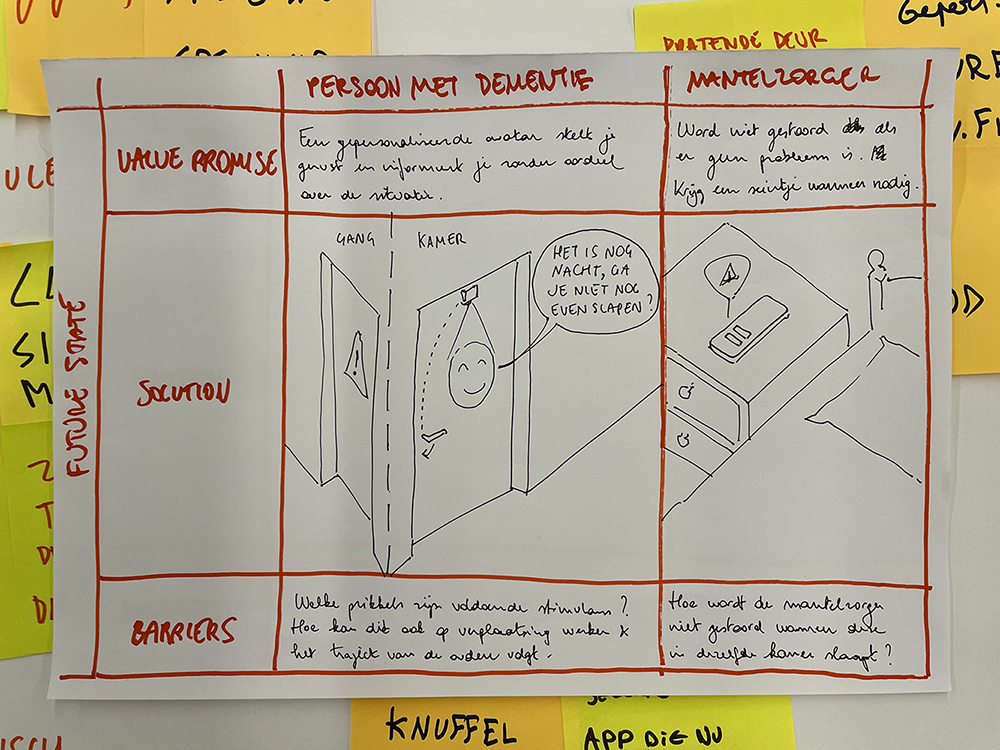 PRATENDE DEUR
PERSOON MET DEMENTIE
MANTELZORGER
FUTURE STATE
VALUE PROMISE
Een gepersonaliseerde avatar stelt je
gerust en informeert je zonder oordeel
over de situatie.
Word niet gestoord als
er geen probleem is.
Krijg een seintje wanneer nodig.
SOLUTION
GANG
KAMER
HET IS NOG
NACHT, GA
JE NIET NOG
EVEN SLAPEN?
!
BARRIERS
Welke prikkels zijn voldoende stimulans?
Hoe kan dit ook op verplaatsing werken &
het traject van de ouderen volgt.
Hoe wordt de mantelzorger
niet gestoord wanneer deze
in dezelfde kamer slaapt?
KNUFFEL
APP DIE NU